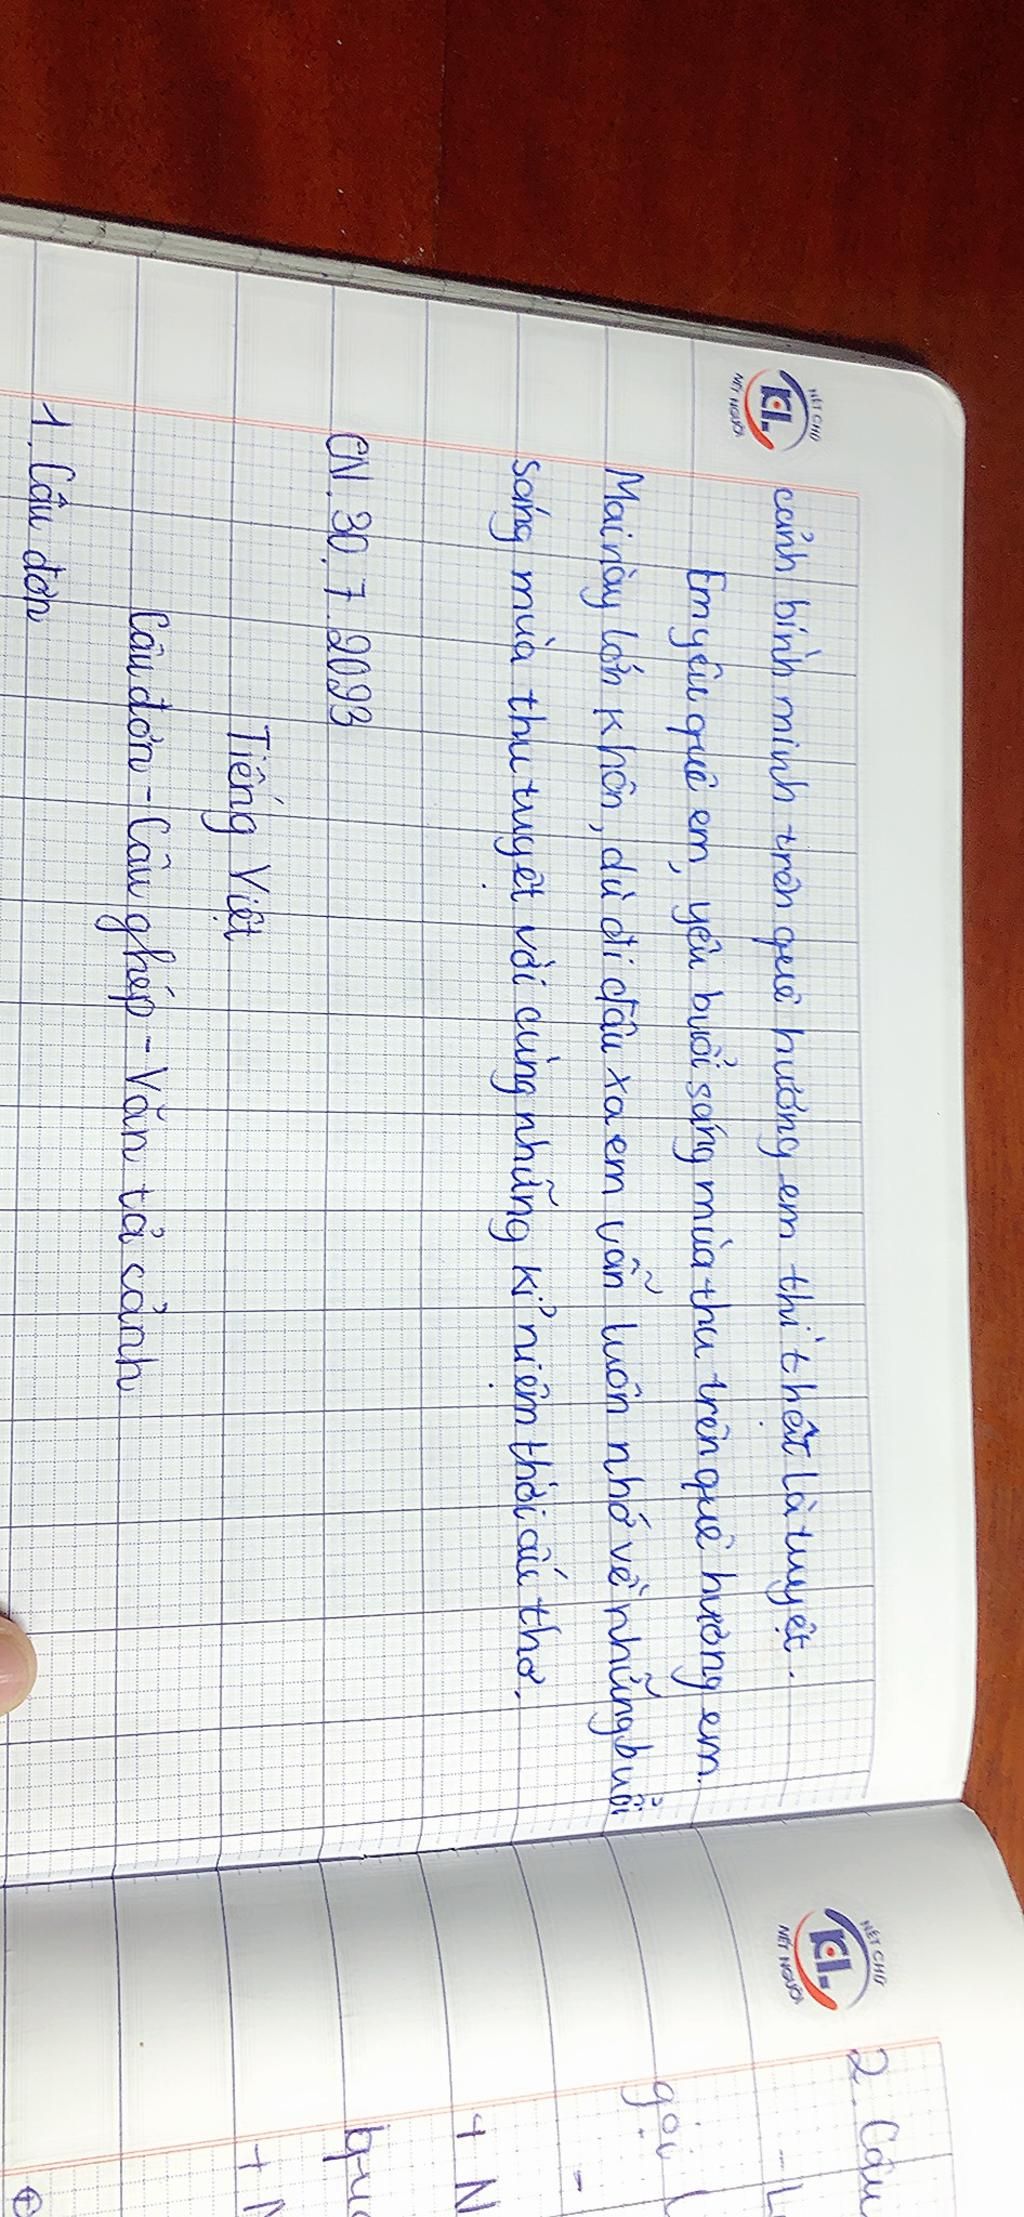 NÉT CHỮ
KL
NẾT NGƯỜI
cảnh bình minh trên quê hương em thì thật là tuyệt.
Em yêu quê em, yêu buổi sáng mùa thu trên quê hương em.
Mai này lớn khôn, dù đi đâu xa em vẫn luôn nhớ về những buổi
sáng mùa thu tuyệt vời cùng những kỉ niệm thời ấu thơ.
CN. 30. 7. 2023
Tiếng Việt
Câu đơn - Câu ghép - Văn tả cảnh
1. Câu đơn
NÉT CHỮ
KL
NẾT NGƯỜI
2. Câu
- L
gọi
-
+ N
qu
+ N